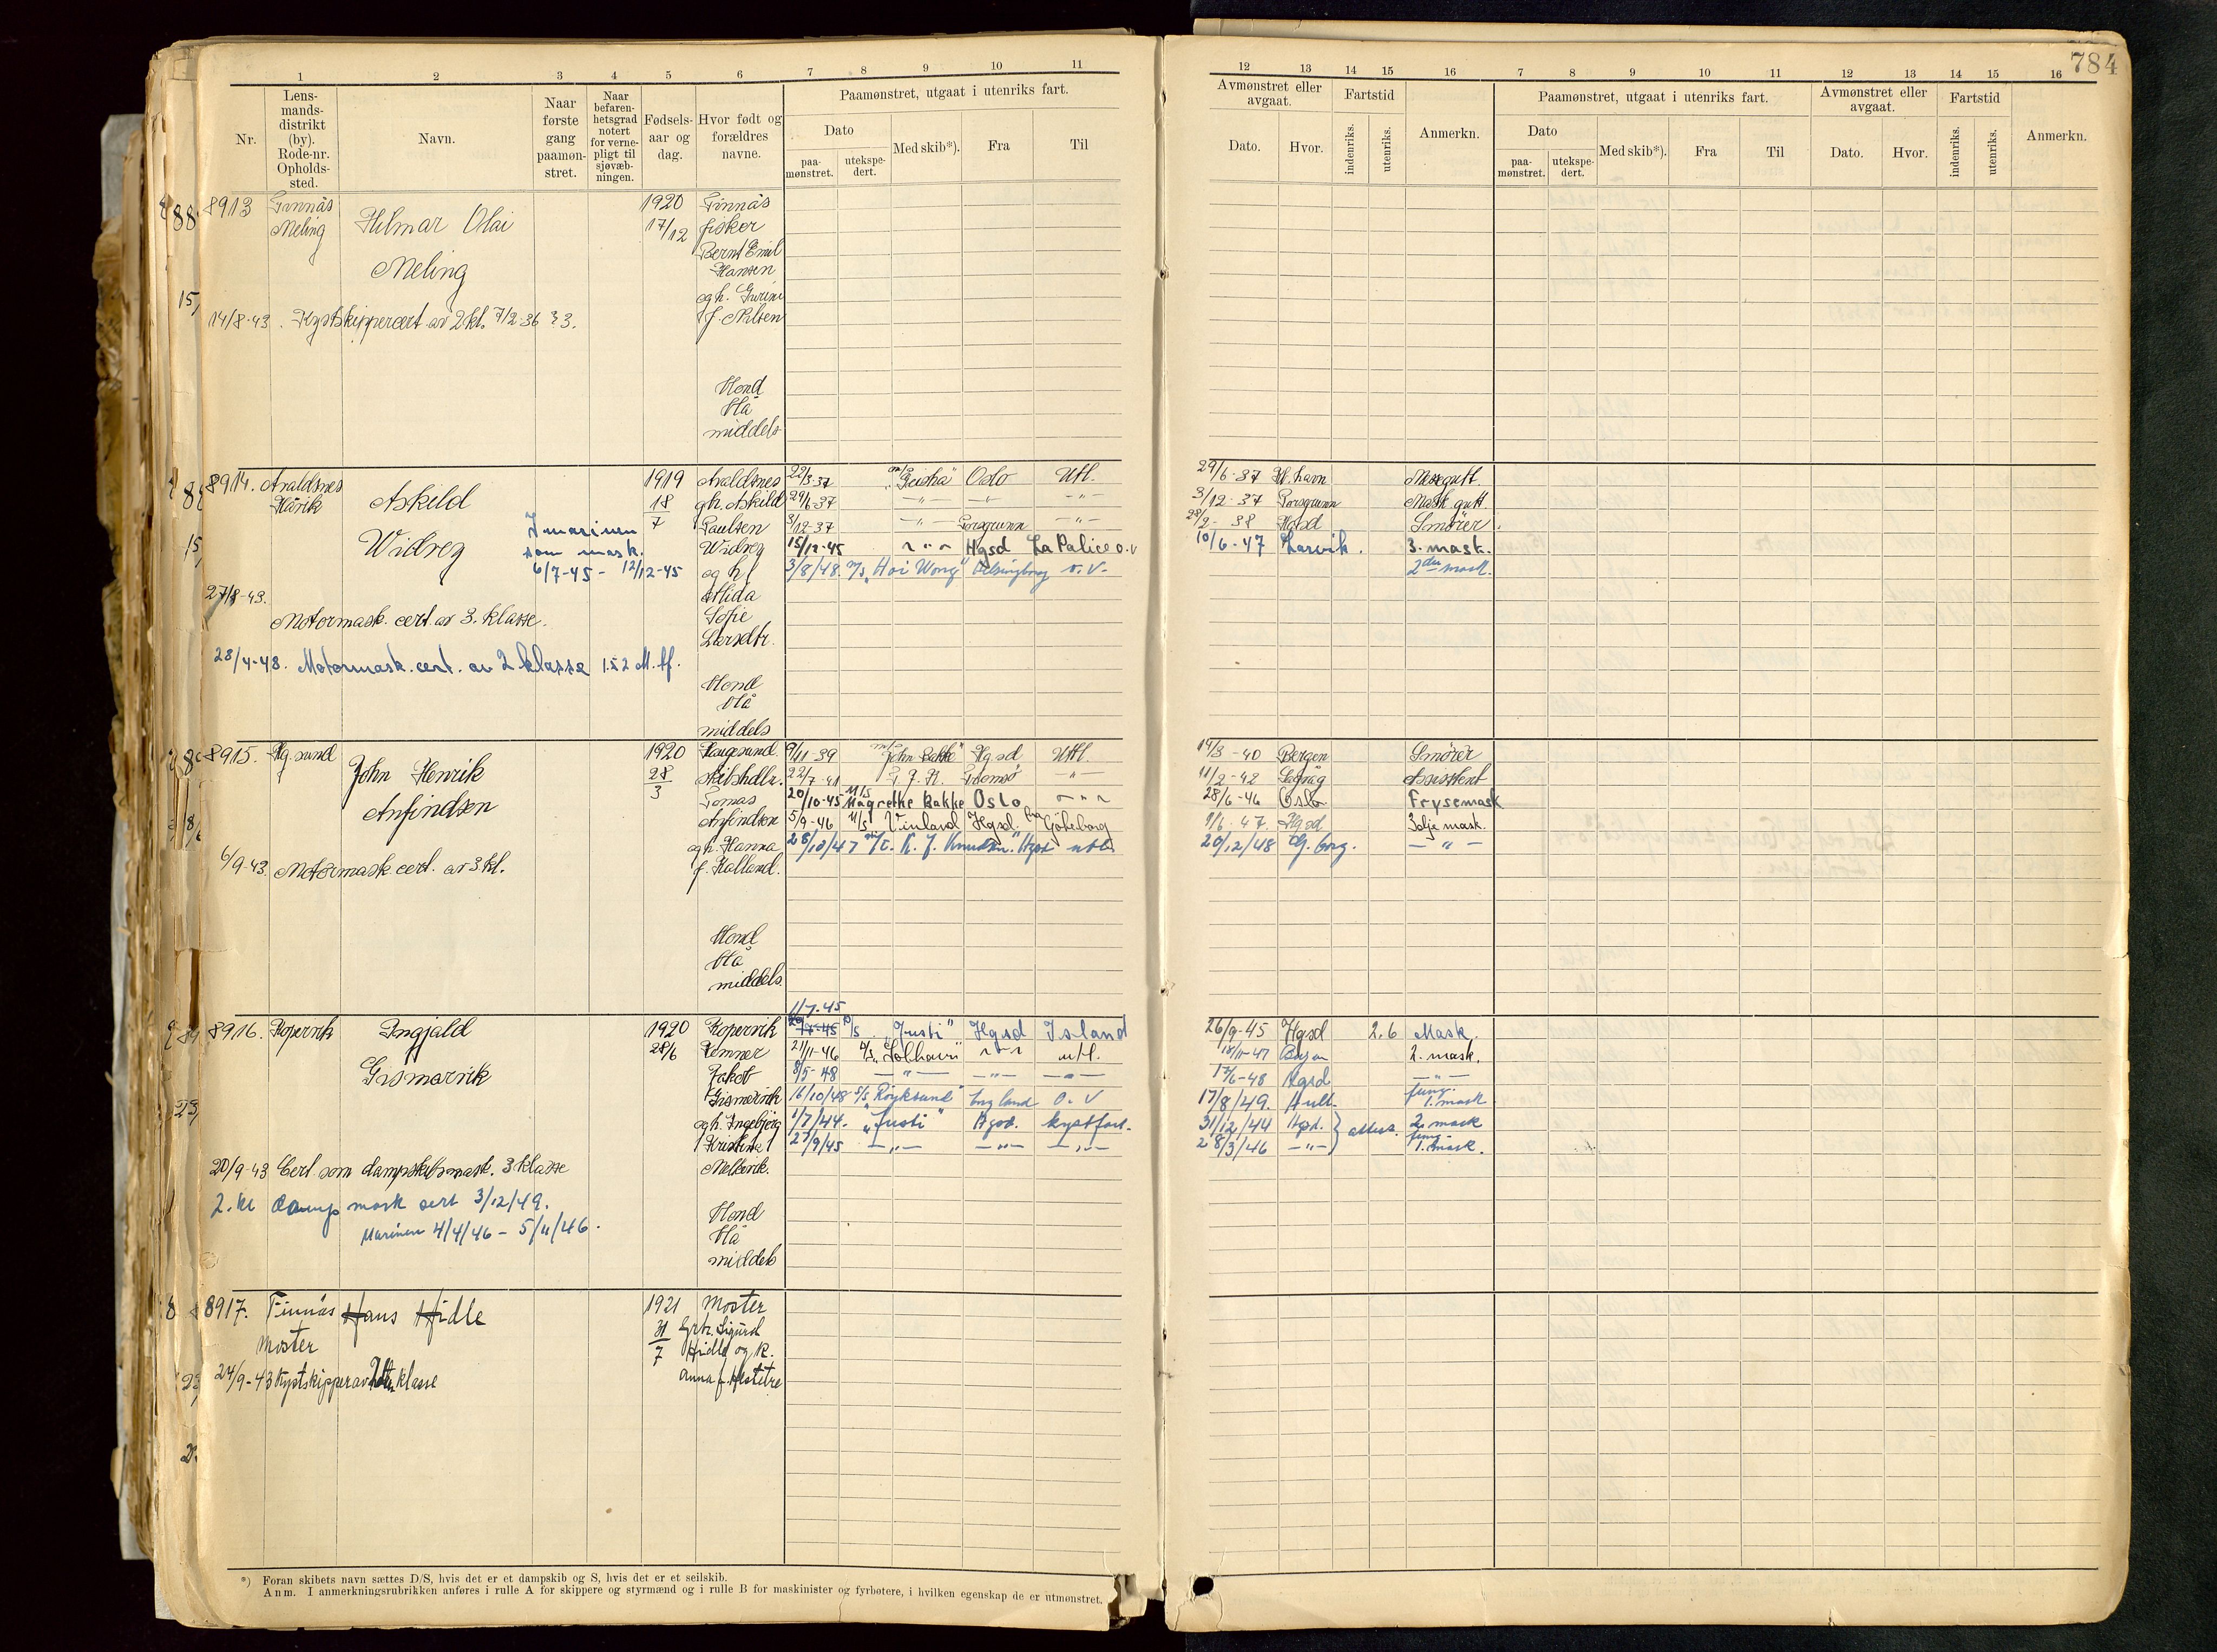 784
1 2 3 4 5 6 7 8 9 10 11
12 13 14 15 16 7 8 9 10 11 12 13 14 15 16
Nr.
Lens-
mands-
distrikt
(by).
Rode-nr.
Opholds-
sted.
Navn.
Naar
første
gang
paamøn-
stret.
Naar
befaren-
hetsgrad
notert
for verne-
pligt til
sjøvæb-
ningen.
Fødsels-
aar og
dag.
Hvor født og
forældres
navne.
Paamønstret, utgaat i utenriks fart.
Dato
paa-
mønstret.
utekspe-
dert.
Med skib*).
Fra
Til
Avmønstret eller
avgaat.
Dato.
Hvor.
Fartstid
indenriks.
utenriks.
Anmerkn.
Paamønstret, utgaat i utenriks fart.
Dato
paa-
mønstret.
utekspe-
dert.
Med skib*).
Fra
Til
Avmønstret eller
avgaat.
Dato.
Hvor.
Fartstid
indenriks.
utenriks.
Anmerkn.
8913 Finnås 1920 Finnås
Meling Hilmar Olai 17/12 fisker
Bernt Emil
Meling Hansen
og h.
14/8-43. Kystskippercert. av 2 kl. 7/2-36 § 3. f. Nilsen
Blond
blå
middels
8914. Avaldsnes 1919 Avaldsnes 22/3-37 m/s "Geisha" Oslo Utl. 29/6-37 Kr.havn Messgutt.
Håvik Askild 18/7 gh. Askild 29/6-37 -"- -"- -"- 3/12-37 Porsgrunn Mask.gutt.
I marinen Paulsen 3/12-37 -"- Porsgrunn -"- 28/2-38 Hgsd Smører.
Widvey som mask. Widvey 15/12-45 -"- Hgsd La Palice o.v 10/6-47 Larvik. 3. mask.
6/7-45 - 12/12-45 og h. 3/8/48. m/s "Hoi Wong" Helsingborg o.v. 2den mask.
27/8-43. Alida
Motormask. cert. av 3. klasse. Sofie
Larsdtr.
28/4-48. Motormask. cert. av 2 klasse 152 M.tf.
Blond
blå
middels
8915. Hg.sund 1920 Haugesund 9/11-39 m/s "John Bakke" Hgsd Utl. 14/3-40 Bergen Smører
John Henrik 28/3 skibshdlr. 22/7-41 Tromsø -"- 11/2-42 Assistent
Tomas 20/10-45 M/S Magrethe Bakke Oslo -"- 28/6-46 Oslo Frysemask
Anfindsen Anfindsen 5/9-46 M/S Vinland Hgsd. Gøteborg 9/6-47. Hgsd 3dje mask.
og h. Hanna 28/10/47 K. J. Knudsen." Hgsd utl. 20/12/48 G.borg. -"-
6/9-43. Motormask. cert. av 3 kl. f. Kalland.
Blond
blå
middels.
1/7-45
8916. Kopervik Ingjald 1920 Kopervik D/S "Justi" Hgsd Island 26/9-45 Hgsd 2.6 Mask.
28/6 Kemner 21/11-46 D/S "Solhavn" -"- utl. 18/11-47 2. mask.
Gismarvik Jakob 8/5-48 -"- -"- -"- 12/6-48 Hgsd -"-
Gismervik 16/10/48 S/S "Røyksund" England O.V 17/8/49. Hull. fung. 1. mask
og h. Ingebjørg 1/7/44. "Justi" Hgsd. kystfart. 31/12/44 Hgsd. attest. 2. mask
Kristina 27/9/45 -"- -"- -"- 28/3/46 -"- fung. 1. mask.
20/9-43 Cert. som dampskibsmask. 3 klasse
2. kl damp mask sert 3/12/49.
Marinen 4/4/46 - 5/11/46. Blond
blå
middels
8917. Finnås Hans Hidle 1921 Moster
Moster 31/7 Sigurd
Hidle og k.
24/9-43 Kystskipper av 2den klasse Anna f.
*) Foran skibets navn sættes D/S, hvis det er et dampskib og S, hvis det er et seilskib.
Anm. I anmerkningsrubrikken anføres i rulle A for skippere og styrmænd og i rulle B for maskinister og fyrbøtere, i hvilken egenskap de er utmønstret.